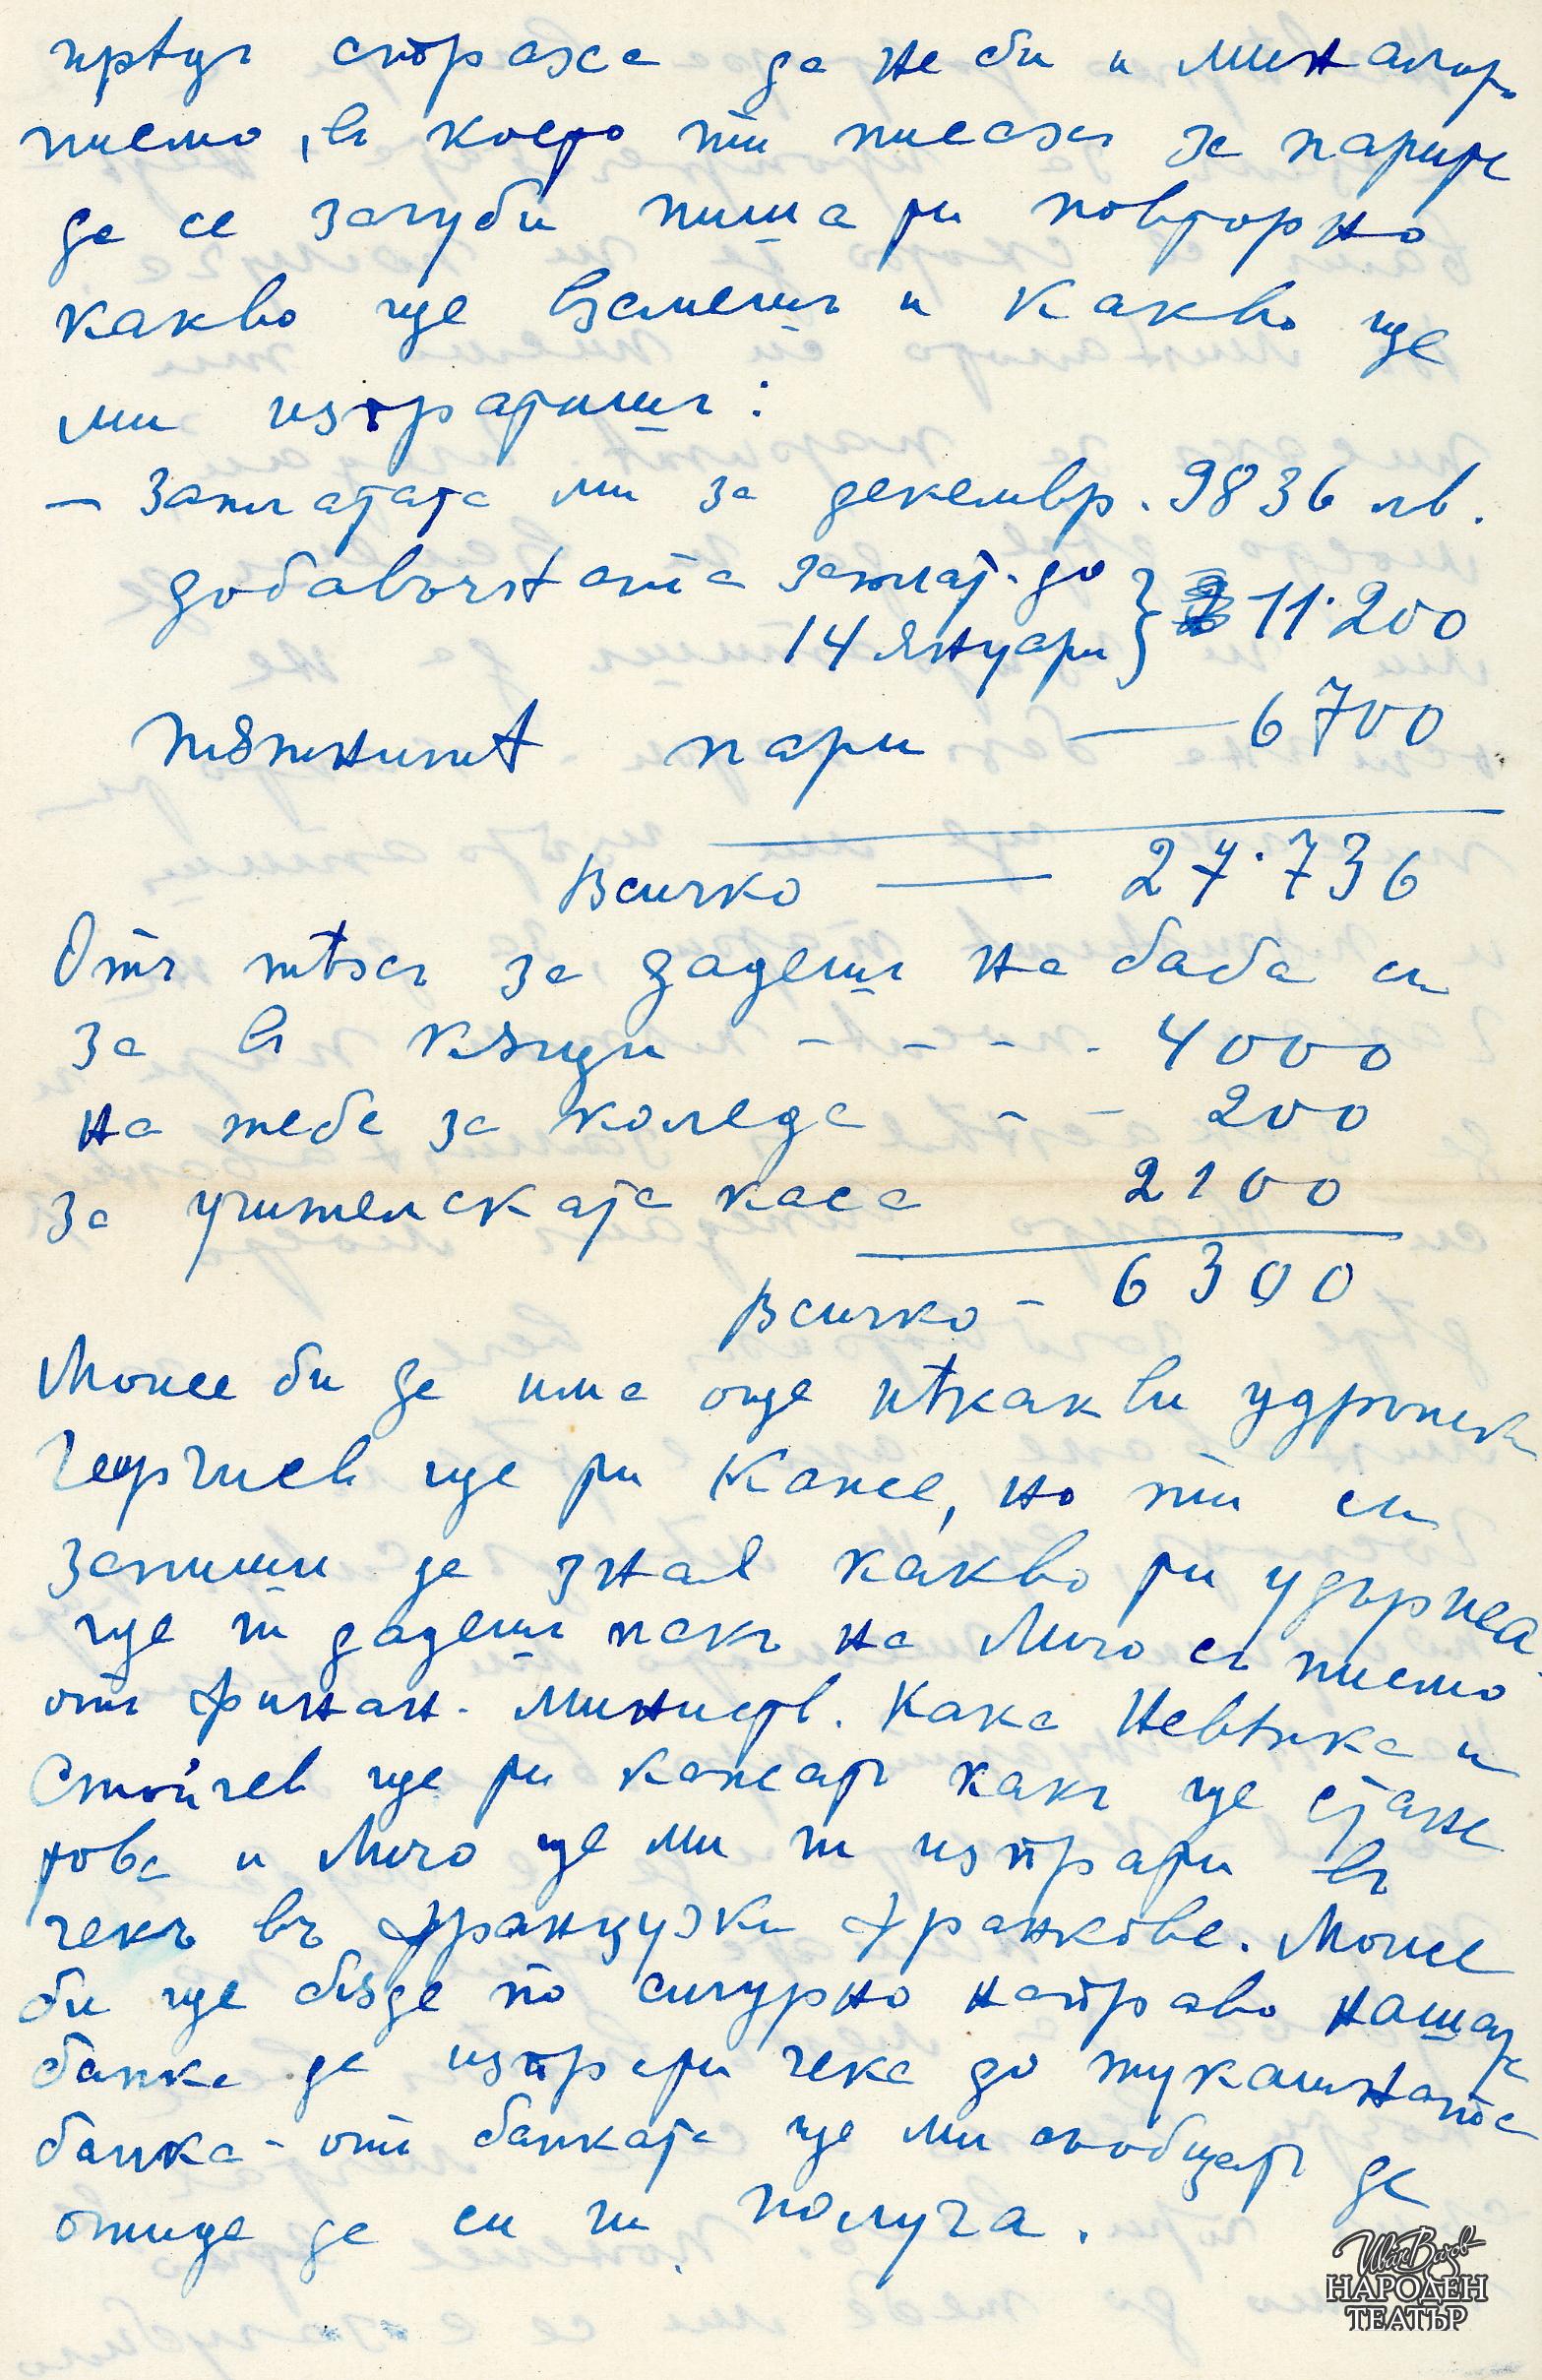 да не би и миналото
писмо, въ което ти писахъ за парите
да се загуби пиша ти повторно
какво ще вземешъ и какво ще
ми изпратишъ:
— Заплатата ми за декемвр. 9836 лв.
добавъчната заплат. до } 11.200
14 януари
пѫтнитѣ пари — 6700
Всичко — 27.736
Отъ тѣхъ да дадешъ на баба си
за въ кѫщи - - - - 4000
на тебе за коледа - - 200
за учителската каса 2100
Всичко - 6300
Може би да има още нѣкакви удръжки
Георгиев ще ти каже, но ти си
запиши да зная какво ти удържеа
ще ги дадеш пакъ на Мичо съ писмо
отъ финан. министв. Кака Невѣнка и
Стойчев ще ти кажатъ какъ ще стане
това и Мичо ще ми ги изпрати въ
чекъ въ французки франкове. Може
би ще бѫде по сигурно направо нашата
банка да изпрати чека до тукашната
банка - отъ банката ще ми съобщатъ да
отида да си ги получа.
Иван Вазов
НАРОДЕН
ТЕАТЪР